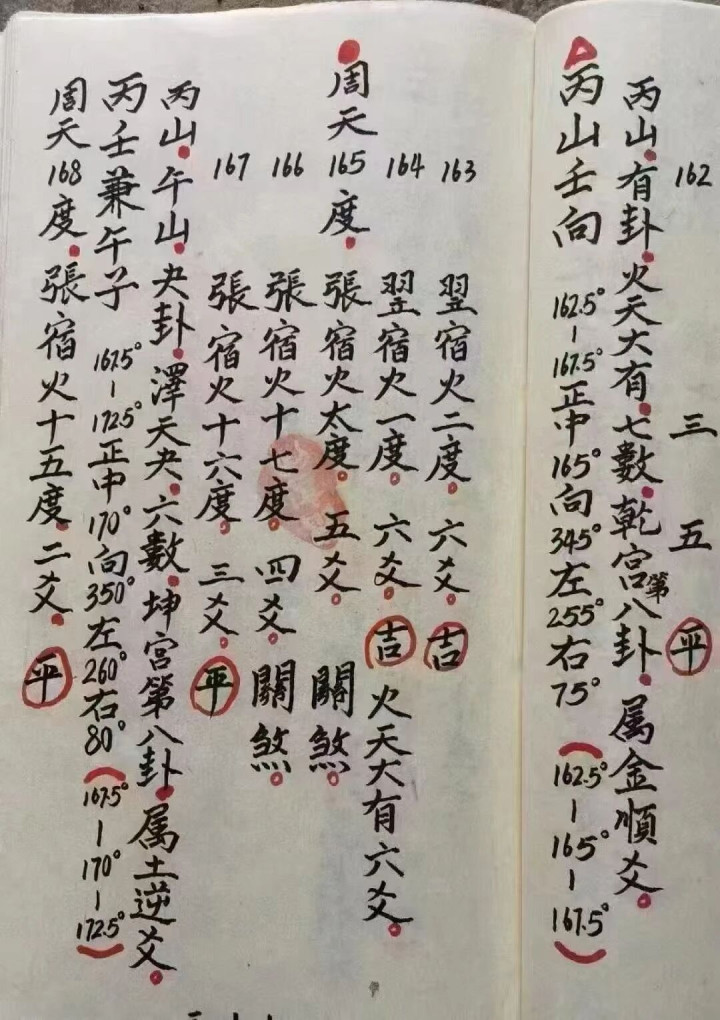 162 三 五 平
丙山。有卦。火天大有。七數。乾宮第八卦。属金順爻。
丙山壬向 162.5°-167.5°正中165°向345°左255°右75°(162.5°-165°-167.5°)
163 翌宿火二度。六爻。吉
164 翌宿火一度。六爻。吉 火天大有六爻。
周天165度。張宿火太度。五爻。關煞。
166 張宿火十七度。四爻。關煞。
167 張宿火十六度。三爻。平
丙山。午山。夬卦。澤天夬。六數。坤宮第八卦。属土逆爻。
丙壬兼午子 167.5°-172.5°正中170°向350°左260°右80°(167.5°-170°-172.5°)
周天168度。張宿火十五度。二爻。平